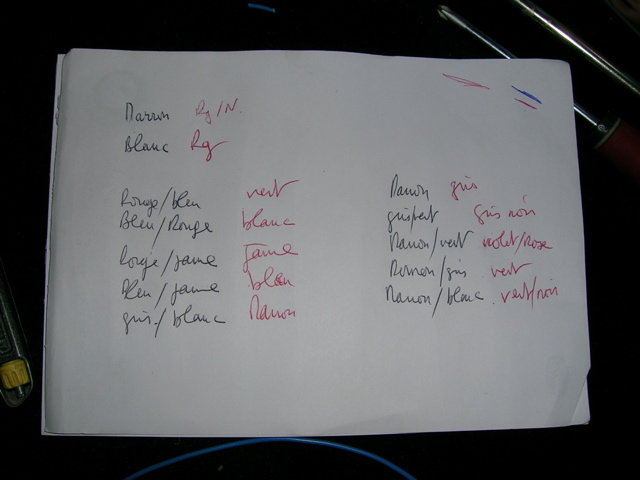 Marron Rg/N.
Blanc Rg
Rouge/bleu vert
Bleu/Rouge blanc
Rouge/jaune Jaune
Bleu/jaune bleu
gris/blanc Marron
Marron gris
gris/vert gris noir
Marron/vert violet/Rose
Marron/gris vert
Marron/blanc. vert/noir